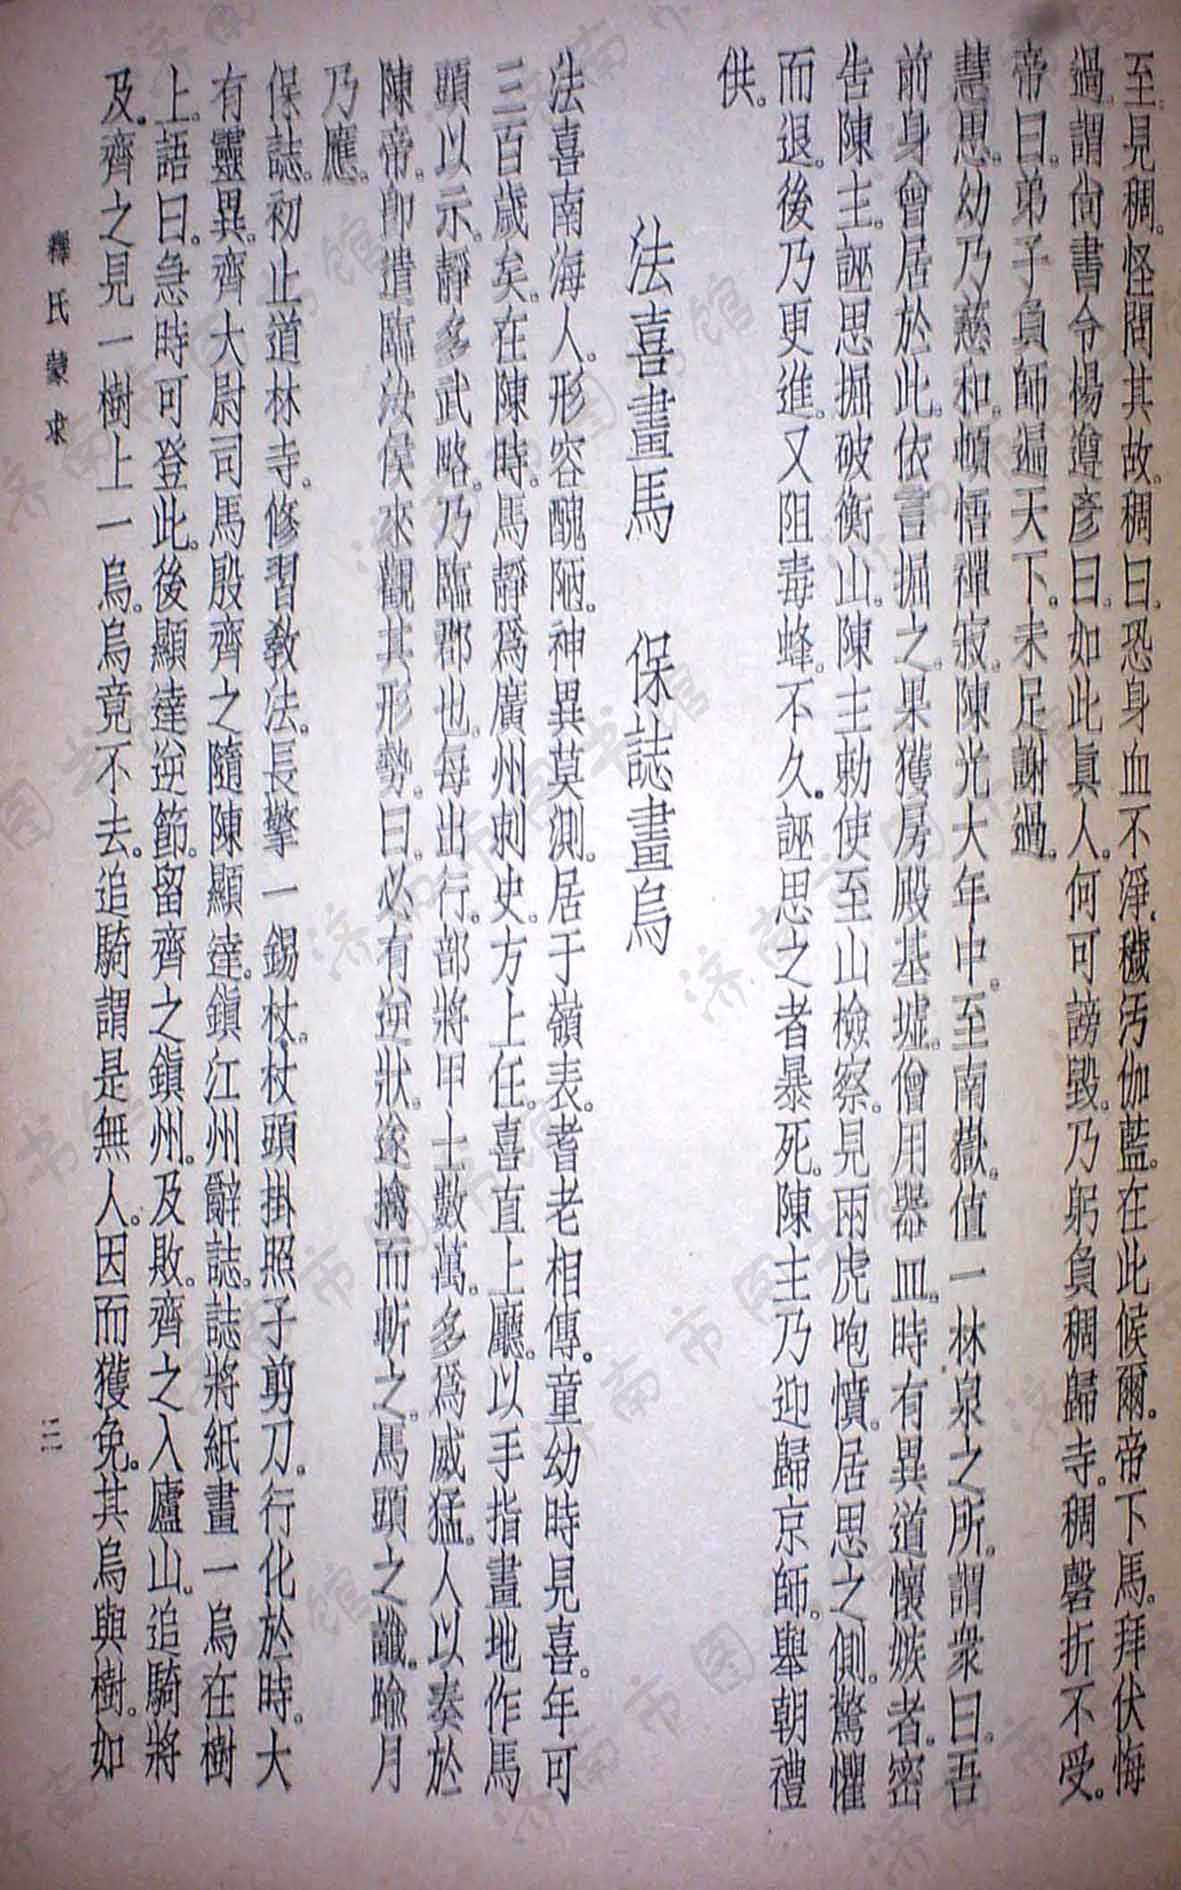 至見稠。怪問其故。稠曰。恐身血不淨。穢汚伽藍。在此候爾。帝下馬。拜伏悔
過。謂尙書令楊遵彥曰。如此眞人。何可謗毀。乃躬負稠歸寺。稠磬折不受。
帝曰。弟子負師遍天下。未足謝過。
慧思。幼乃慈和。頓悟禪寂。陳光大年中。至南嶽。値一林泉之所。謂衆曰。吾
前身曾居於此。依言掘之。果獲房殿基墟。僧用器皿。時有異道懷嫉者。密
告陳主。誣思掘破衡山。陳主勅使至山檢察。見兩虎咆憤。居思之側。驚懼
而退。後乃更進。又阻毒蜂。不久。誣思之者暴死。陳主乃迎歸京師。舉朝禮
供。
法喜畫馬　保誌畫烏
法喜南海人。形容醜陋。神異莫測。居于嶺表。耆老相傳。童幼時見喜。年可
三百歲矣。在陳時。馬靜爲廣州刺史。方上任。喜直上廳。以手指畫地作馬
頭以示。靜多武略。乃臨郡也。每出行。部將甲士數萬。多爲威猛。人以奏於
陳帝。卽遣臨汝侯來觀其形勢。曰。必有逆狀。遂擒而斬之。馬頭之讖。喩月
乃應。
保誌。初止道林寺。修習敎法。長擎一錫杖。杖頭掛照子剪刀。行化於時。大
有靈異。齊大尉司馬殷齊之隨陳顯達。鎭江州辭誌。誌將紙畫一烏在樹
上。語曰。急時可登此。後顯達逆節。留齊之鎭州。及敗。齊之入廬山。追騎將
及。齊之見一樹上一烏。烏竟不去。追騎謂是無人。因而獲免。其烏與樹。如
釋氏蒙求
三一